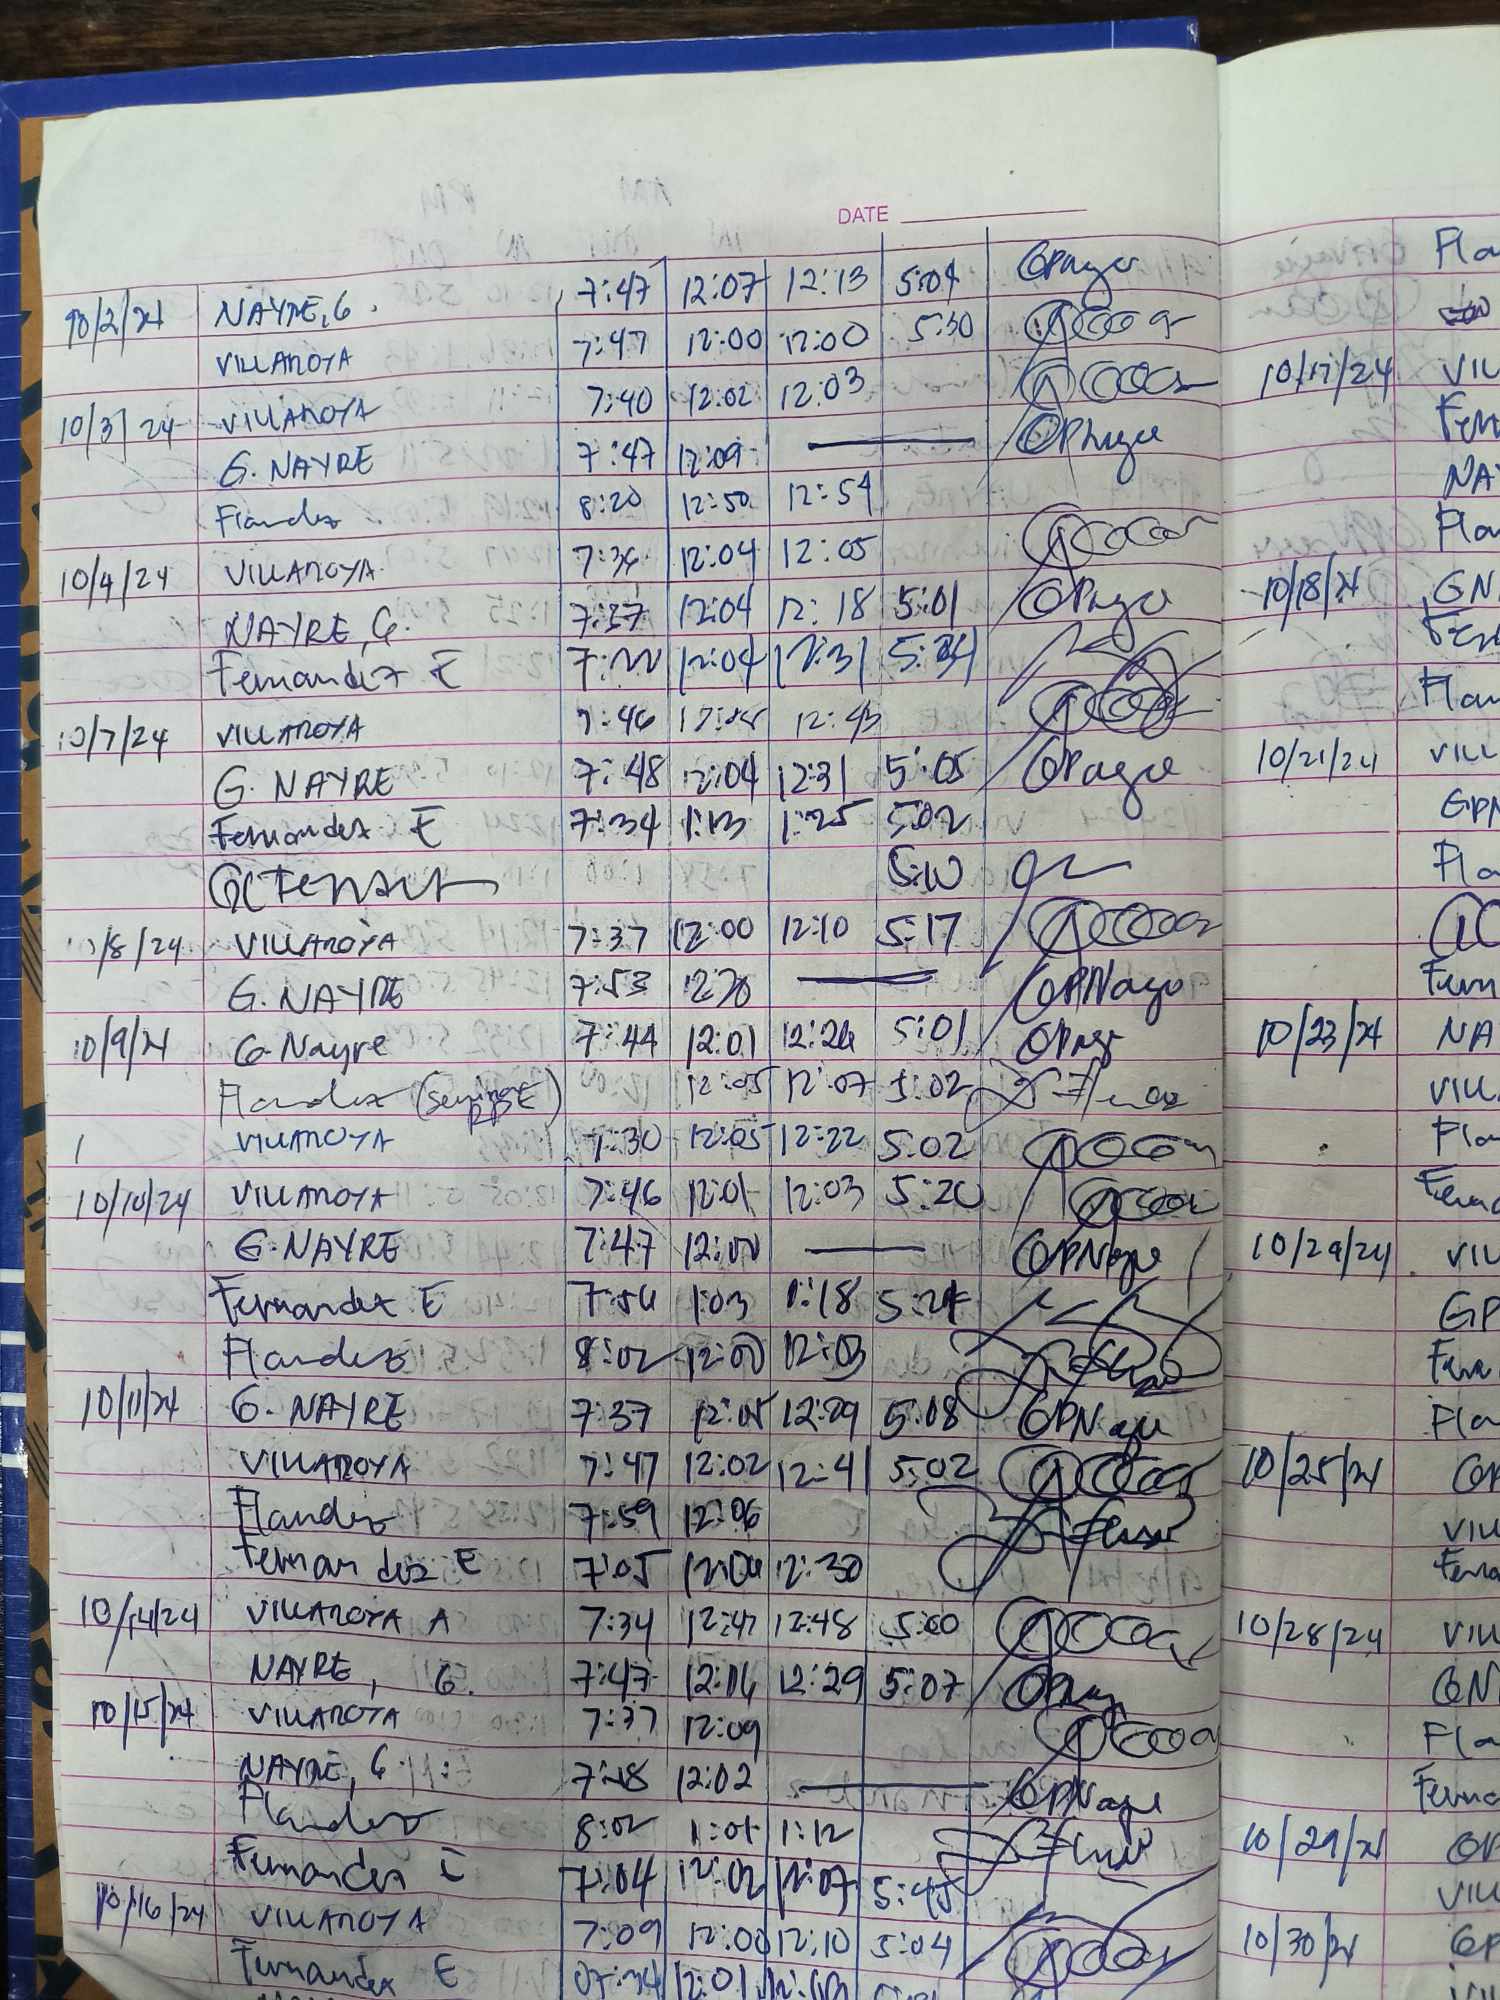 DATE
10/2/24 NAYRE, G. 7:47 12:07 12:13 5:04
VILLAROYA 7:47 12:00 12:00 5:30
10/3/24 VILLAROYA 7:40 12:02 12:03
G. NAYRE 7:47 12:09 —
Flandez 8:20 12:50 12:54
10/4/24 VILLAROYA 7:36 12:04 12:05
NAYRE, G. 7:37 12:04 12:18 5:01
Fernandez E 7:22 12:04 12:31
10/7/24 VILLAROYA 7:46 12:43
G. NAYRE 7:48 12:04 12:31 5:05
Fernandez E 7:34 1:13 1:25 5:02
5:10
10/8/24 VILLAROYA 7:37 12:00 12:10 5:17
G. NAYRE 7:53 12:20 —
10/9/24 G. Nayre 7:44 12:01 12:26 5:01
Flandez 12:05 12:07 5:02
VILLAROYA 7:30 12:05 12:22 5:02
10/10/24 VILLAROYA 7:46 12:01 12:03 5:20
G. NAYRE 7:47 12:00 —
Fernandez E 7:56 1:03 1:18 5:24
Flandez 8:02 12:00 12:03
10/11/24 G. NAYRE 7:37 12:05 12:29 5:08
VILLAROYA 7:47 12:02 12:41 5:02
Flandez 7:59 12:06
Fernandez E 7:05 12:30
10/14/24 VILLAROYA A 7:34 12:47 12:48 5:00
NAYRE, G. 7:47 12:16 12:29 5:07
10/15/24 VILLAROYA 7:37 12:09
NAYRE, G. 7:48 12:02 —
Flandez 8:02 1:01 1:12
Fernandez E 7:04 12:02 12:07 5:45
10/16/24 VILLAROYA 7:09 12:00 12:10 5:04
Fernandez E 07:34 12:01
Fla
10/17/24 VIL
Fern
NA
Flan
10/18/24 GN
Fern
Flan
10/21/24 VILL
GPN
Fla
Fern
10/23/24 NA
VILL
Flan
Fern
10/24/24 VIL
GP
Fern
Flan
10/25/24 GP
VILL
Ferna
10/28/24 VILL
GN
Fla
Ferna
10/29/24 GP
VILL
10/30/24 GP